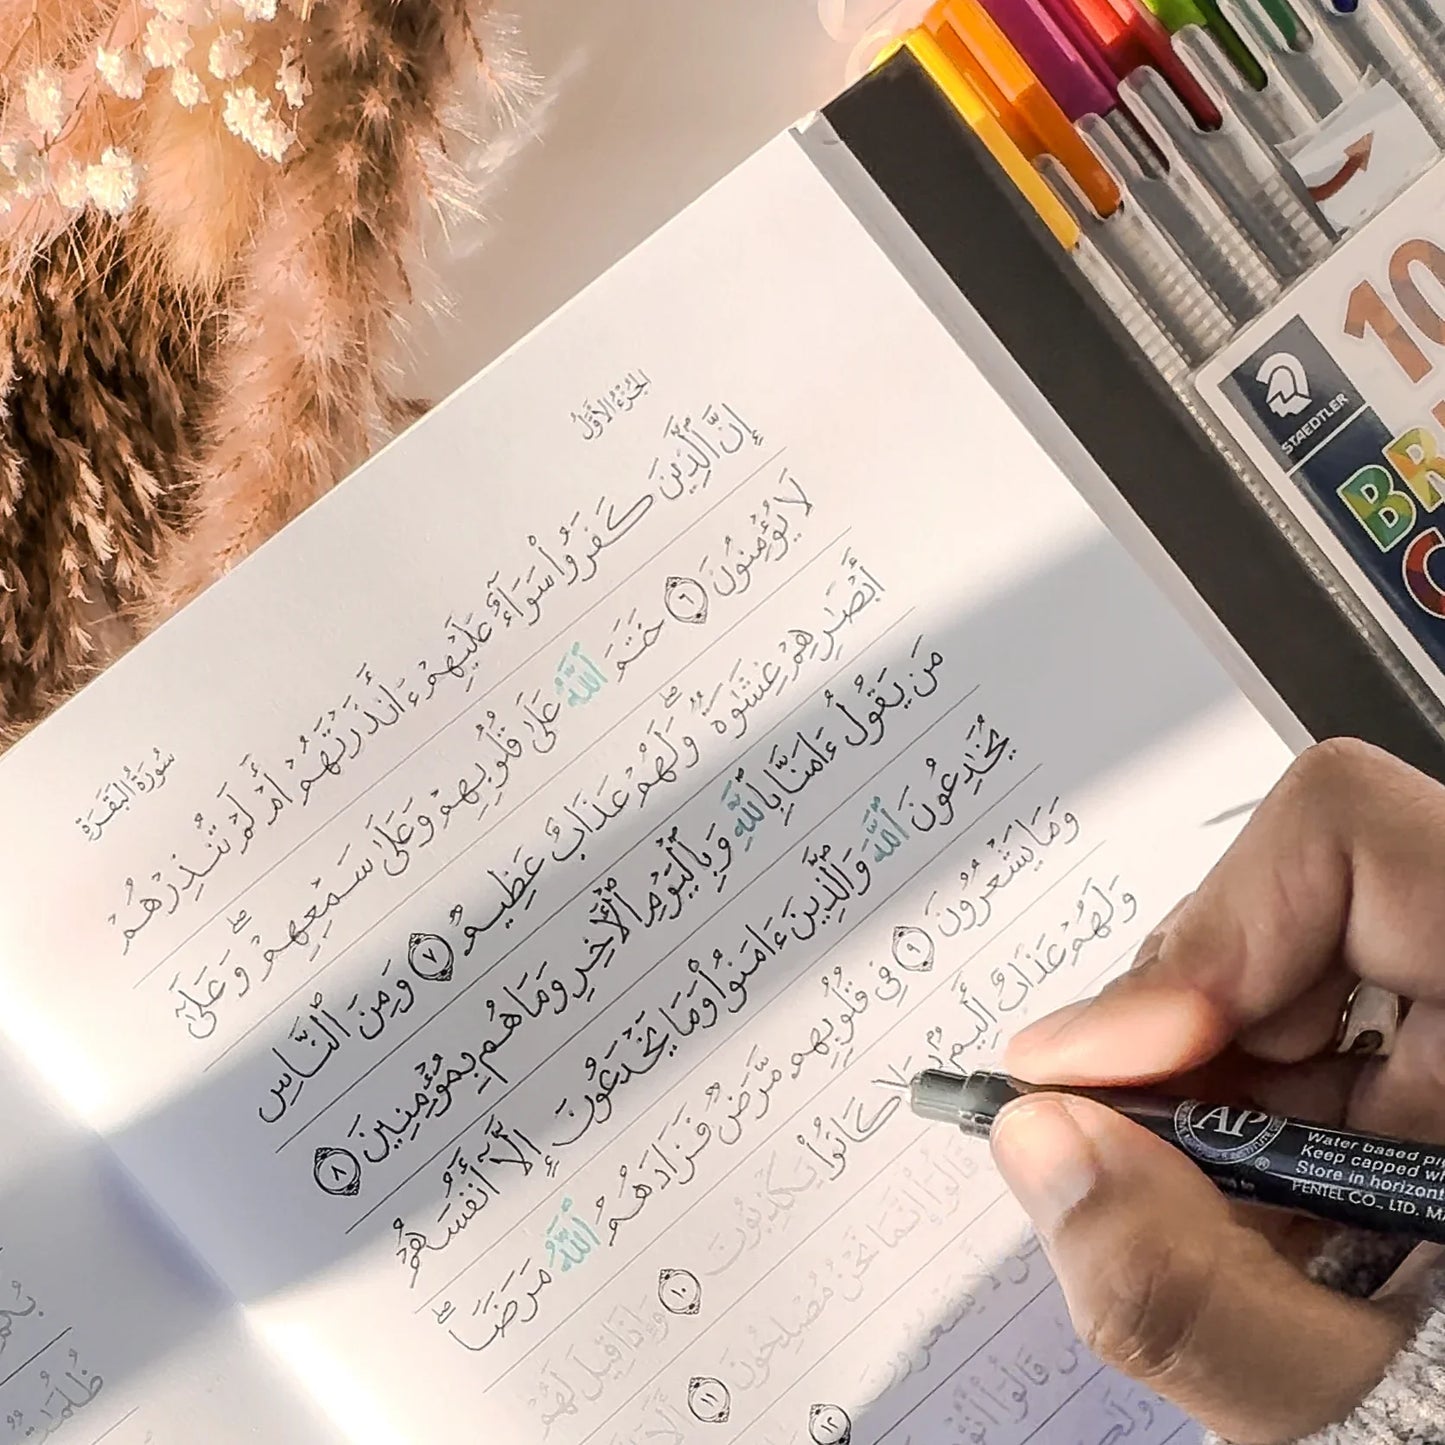 الجُزْءُ الأَوَّلُ
سُورَةُ البَقَرَةِ
إِنَّ ٱلَّذِينَ كَفَرُوا۟ سَوَآءٌ عَلَيْهِمْ ءَأَنذَرْتَهُمْ أَمْ لَمْ تُنذِرْهُمْ
لَا يُؤْمِنُونَ ٦ خَتَمَ ٱللَّهُ عَلَىٰ قُلُوبِهِمْ وَعَلَىٰ سَمْعِهِمْ ۖ وَعَلَىٰٓ
أَبْصَـٰرِهِمْ غِشَـٰوَةٌ ۖ وَلَهُمْ عَذَابٌ عَظِيمٌ ٧ وَمِنَ ٱلنَّاسِ
مَن يَقُولُ ءَامَنَّا بِٱللَّهِ وَبِٱلْيَوْمِ ٱلْـَٔاخِرِ وَمَا هُم بِمُؤْمِنِينَ ٨
يُخَـٰدِعُونَ ٱللَّهَ وَٱلَّذِينَ ءَامَنُوا۟ وَمَا يَخْدَعُونَ إِلَّآ أَنفُسَهُمْ
وَمَا يَشْعُرُونَ ٩ فِى قُلُوبِهِم مَّرَضٌ فَزَادَهُمُ ٱللَّهُ مَرَضًا ۖ
وَلَهُمْ عَذَابٌ أَلِيمٌۢ بِمَا كَانُوا۟ يَكْذِبُونَ ١٠ وَإِذَا قِيلَ لَهُمْ
قَالُوٓا۟ إِنَّمَا نَحْنُ مُصْلِحُونَ ١١ أَلَآ
لَّا يَشْعُرُونَ ١٢
قَالُوٓا۟
STAEDTLER
10
BR
AP
Water based
Keep capped
Store in
PENTEL CO., LTD.